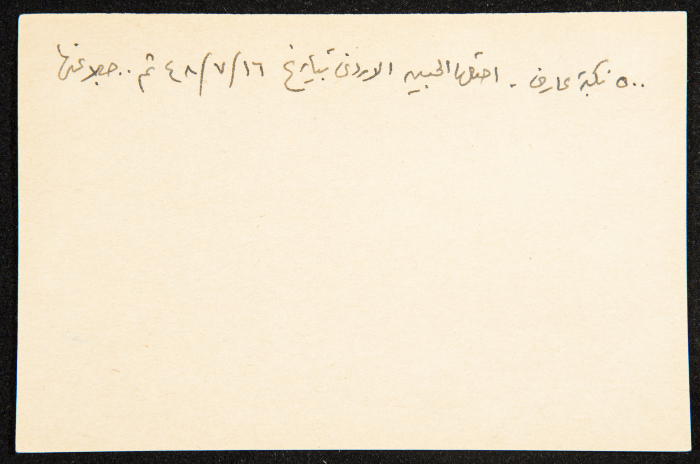 ٥٠٠ نكبة عارف . احتلها الجيش الاردني بتاريخ ١٦/٧/٤٨ ثم .. جلا عنها